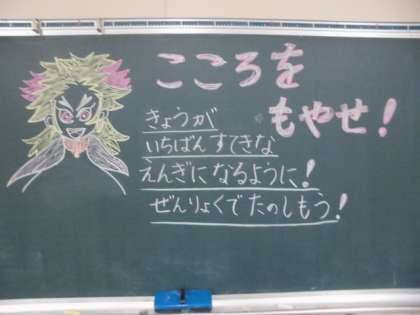 こころを
もやせ!
きょうが
いちばんすてきな
えんぎになるように!
ぜんりょくでたのしもう!